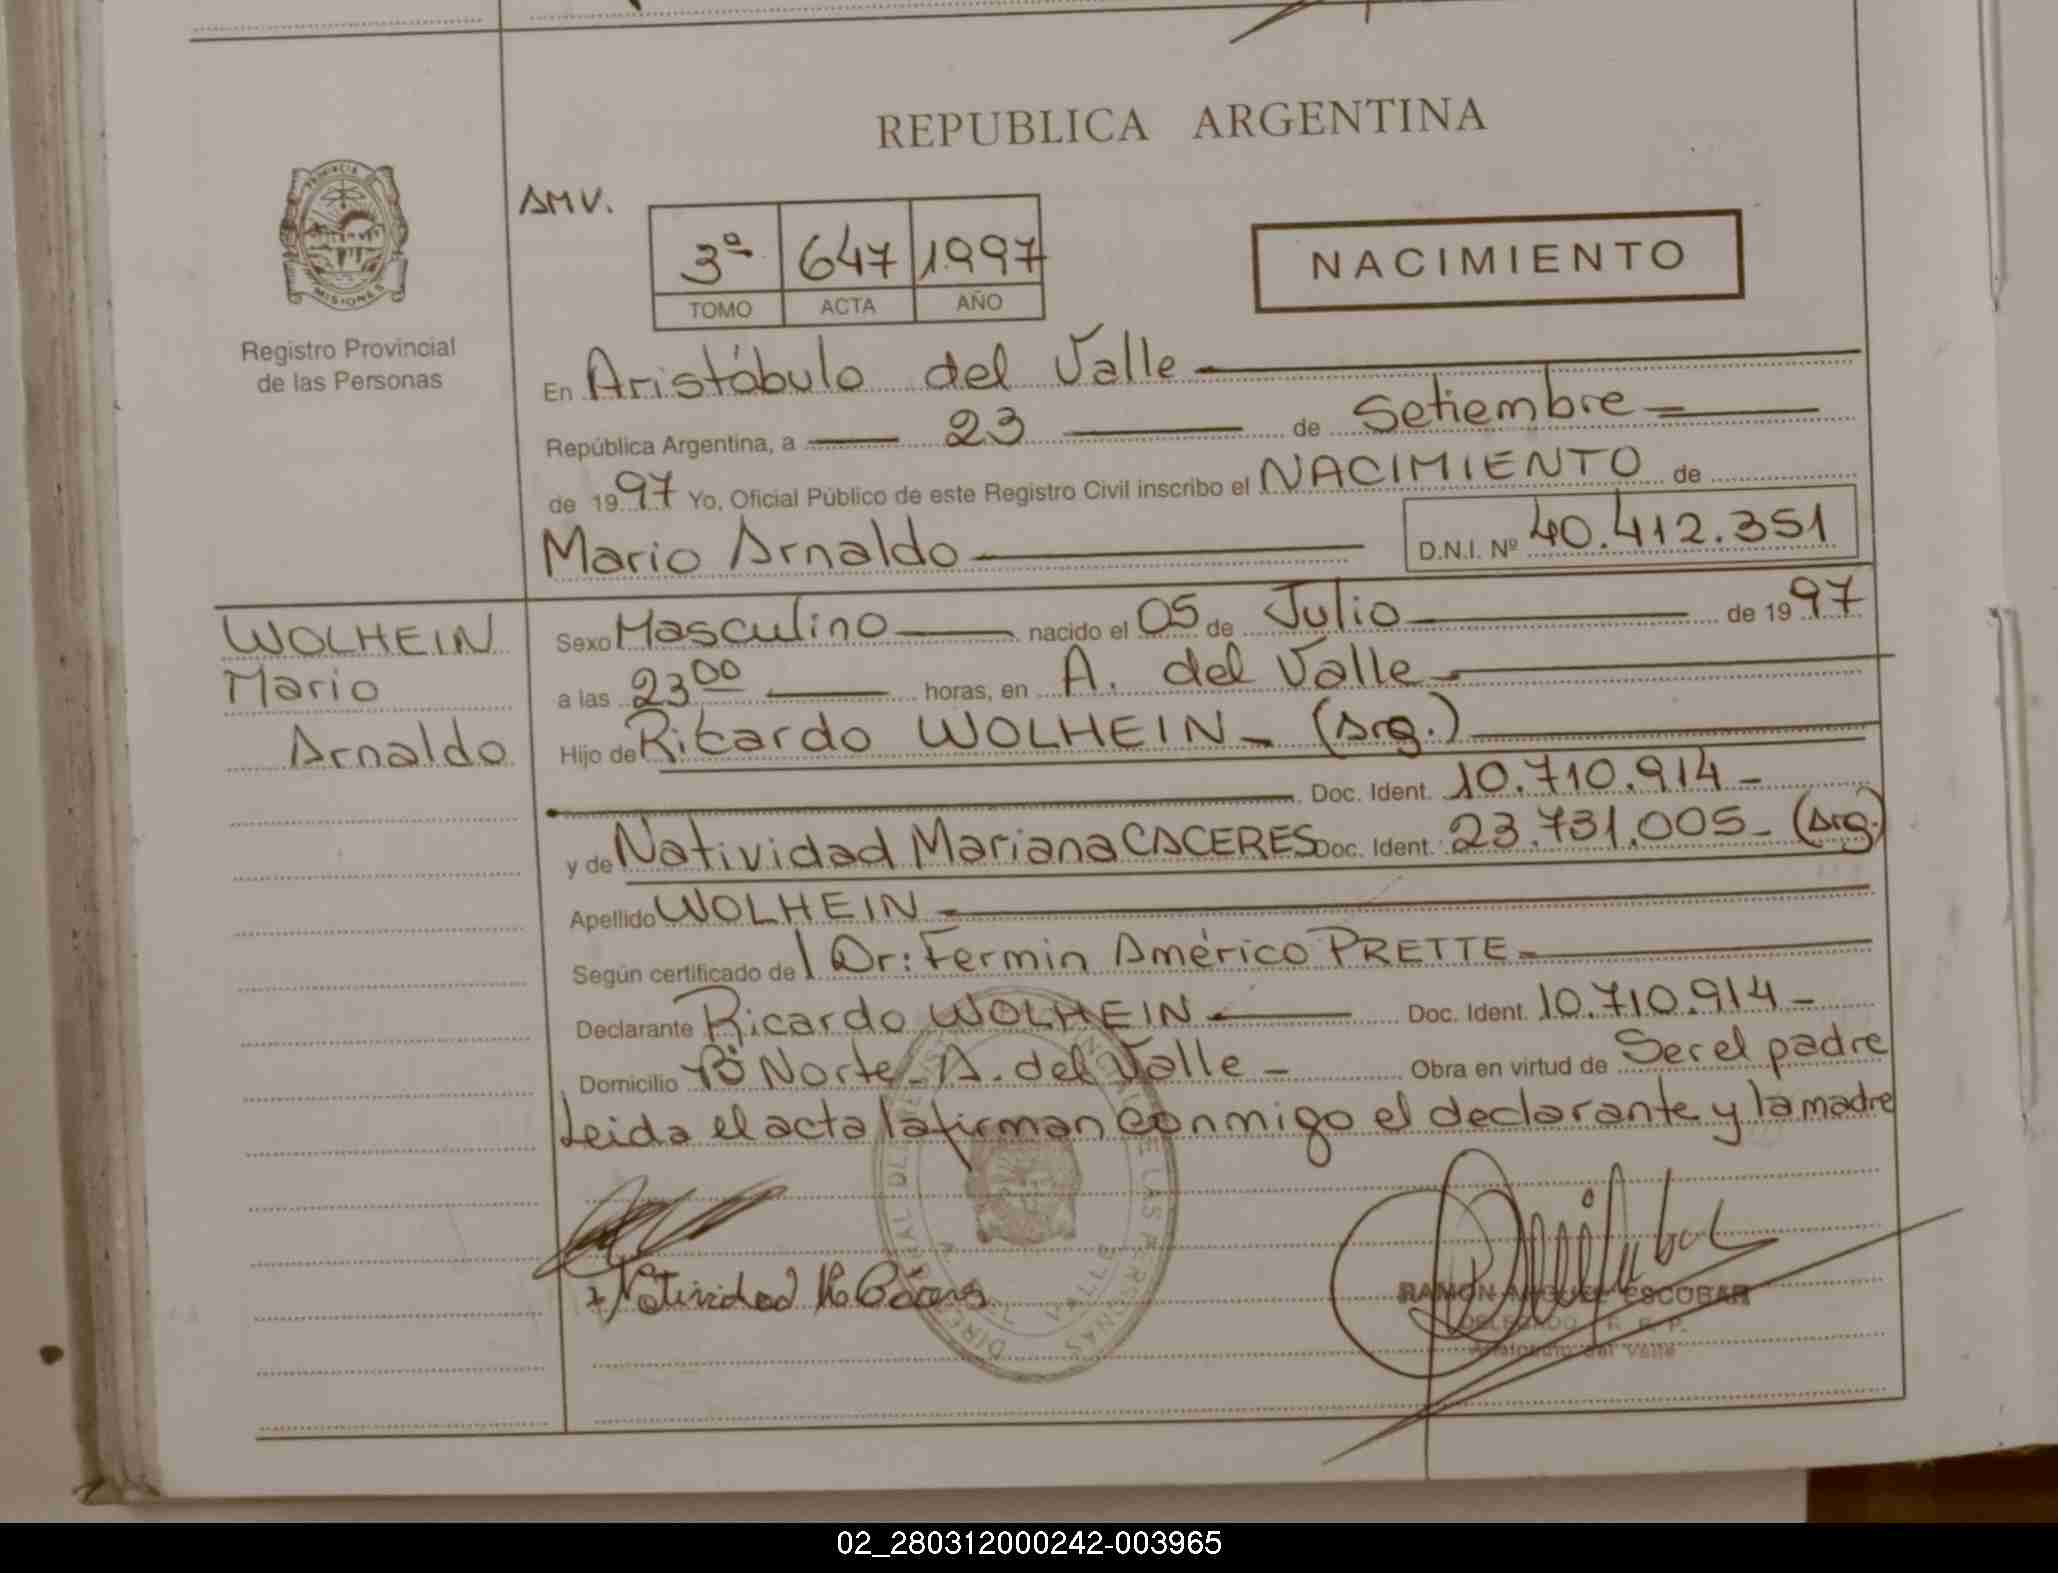 REPUBLICA ARGENTINA
PROVINCIA DE MISIONES
Registro Provincial
de las Personas
AMV.
3ª 647 1997
TOMO ACTA AÑO
NACIMIENTO
En Aristóbulo del Valle
República Argentina, a 23 de Setiembre
de 1997 Yo, Oficial Público de este Registro Civil inscribo el NACIMIENTO de
Mario Arnaldo D.N.I. Nº 40.412.351
WOLHEIN
Mario
Arnaldo
Sexo Masculino nacido el 05 de Julio de 1997
a las 23 00 horas, en A. del Valle
Hijo de Ricardo WOLHEIN - (Arg.)
Doc. Ident. 10.710.914 -
y de Natividad Mariana CACERES Doc. Ident. 23.731.005 - (Arg.)
Apellido WOLHEIN
Según certificado del Dr: Fermin Américo PRETTE
Declarante Ricardo WOLHEIN Doc. Ident. 10.710.914 -
Domicilio Bº Norte - A. del Valle - Obra en virtud de Ser el padre
Leida el acta la firman conmigo el declarante y la madre
Natividad M Cáceres
RAMON MIGUEL ESCOBAR
DELEGADO R. P. P.
Aristobulo del Valle
02_280312000242-003965